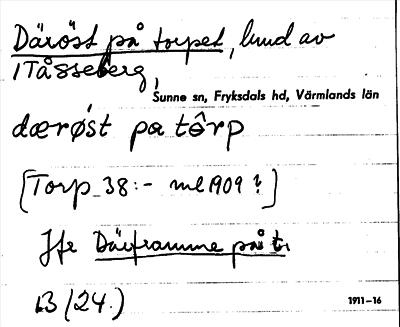 Däröst på torpet, lund av
1 Tåsseberg,
Sunne sn, Fryksdals hd, Värmlands län
dærøst pa tôrp
[Torp 38:- ml 1909 ?]
Jfr Därframme på t.
B (24.)
1911-16